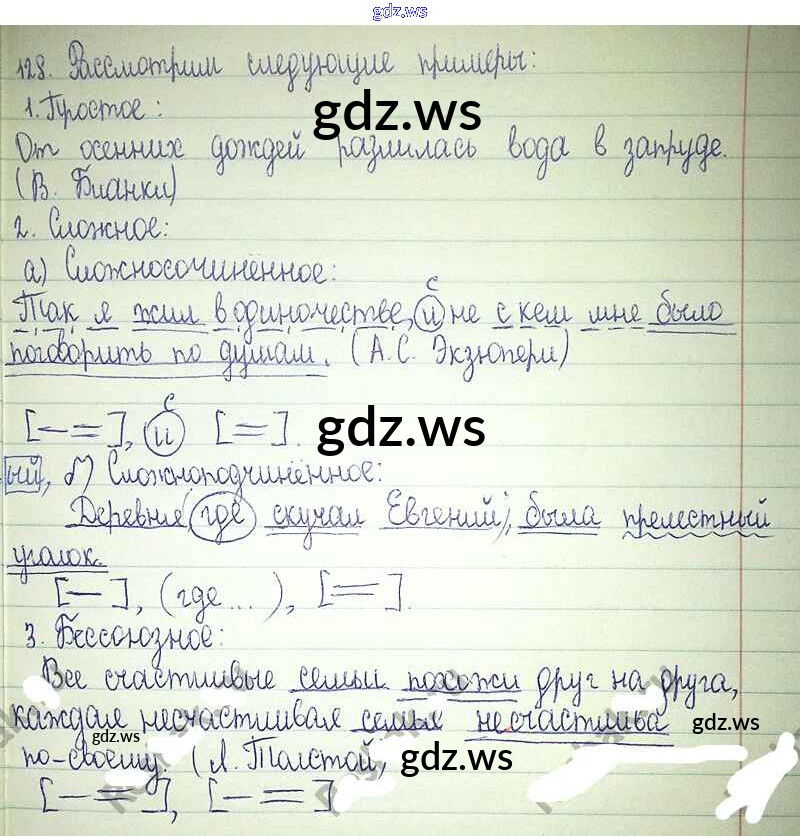 gdz.ws
128. Рассмотрим следующие примеры:
1. Простое:
gdz.ws
От осенних дождей разлилась вода в запруде.
(В. Бианки)
2. Сложное:
а) Сложносочинённое:
с
Так я жил в одиночестве, и не с кем мне было
поговорить по душам. (А.С. Экзюпери)
с
[— =], и [=].
gdz.ws
ый, б) Сложноподчинённое:
Деревня, где скучал Евгений, была прелестный
уголок.
[—], (где...), [=].
3. Бессоюзное:
Все счастливые семьи похожи друг на друга,
каждая несчастливая семья несчастлива
gdz.ws
gdz.ws
по-своему. (Л. Толстой)
gdz.ws
gdz.ws
[— =], [— =]